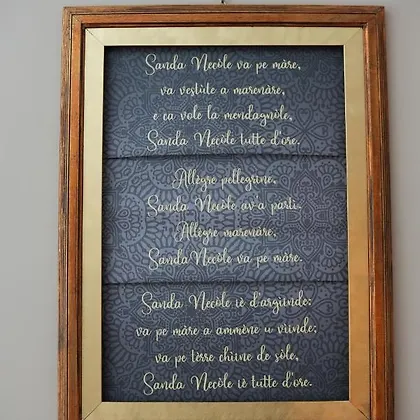 Sanda Necòle va pe màre,
va vestùte a marenàre,
e ca vole la mendagnòle,
Sanda Necòle tutte d'ore.
Allègre pellegrine,
Sanda Necòle av-a partì.
Allègre marenàre,
Sanda Necòle va pe màre.
Sanda Necòle iè d'argiùnde;
va pe màre a ammène u vìinde;
va pe tèrre chiìne de sòle,
Sanda Necòle iè tutte d'ore.